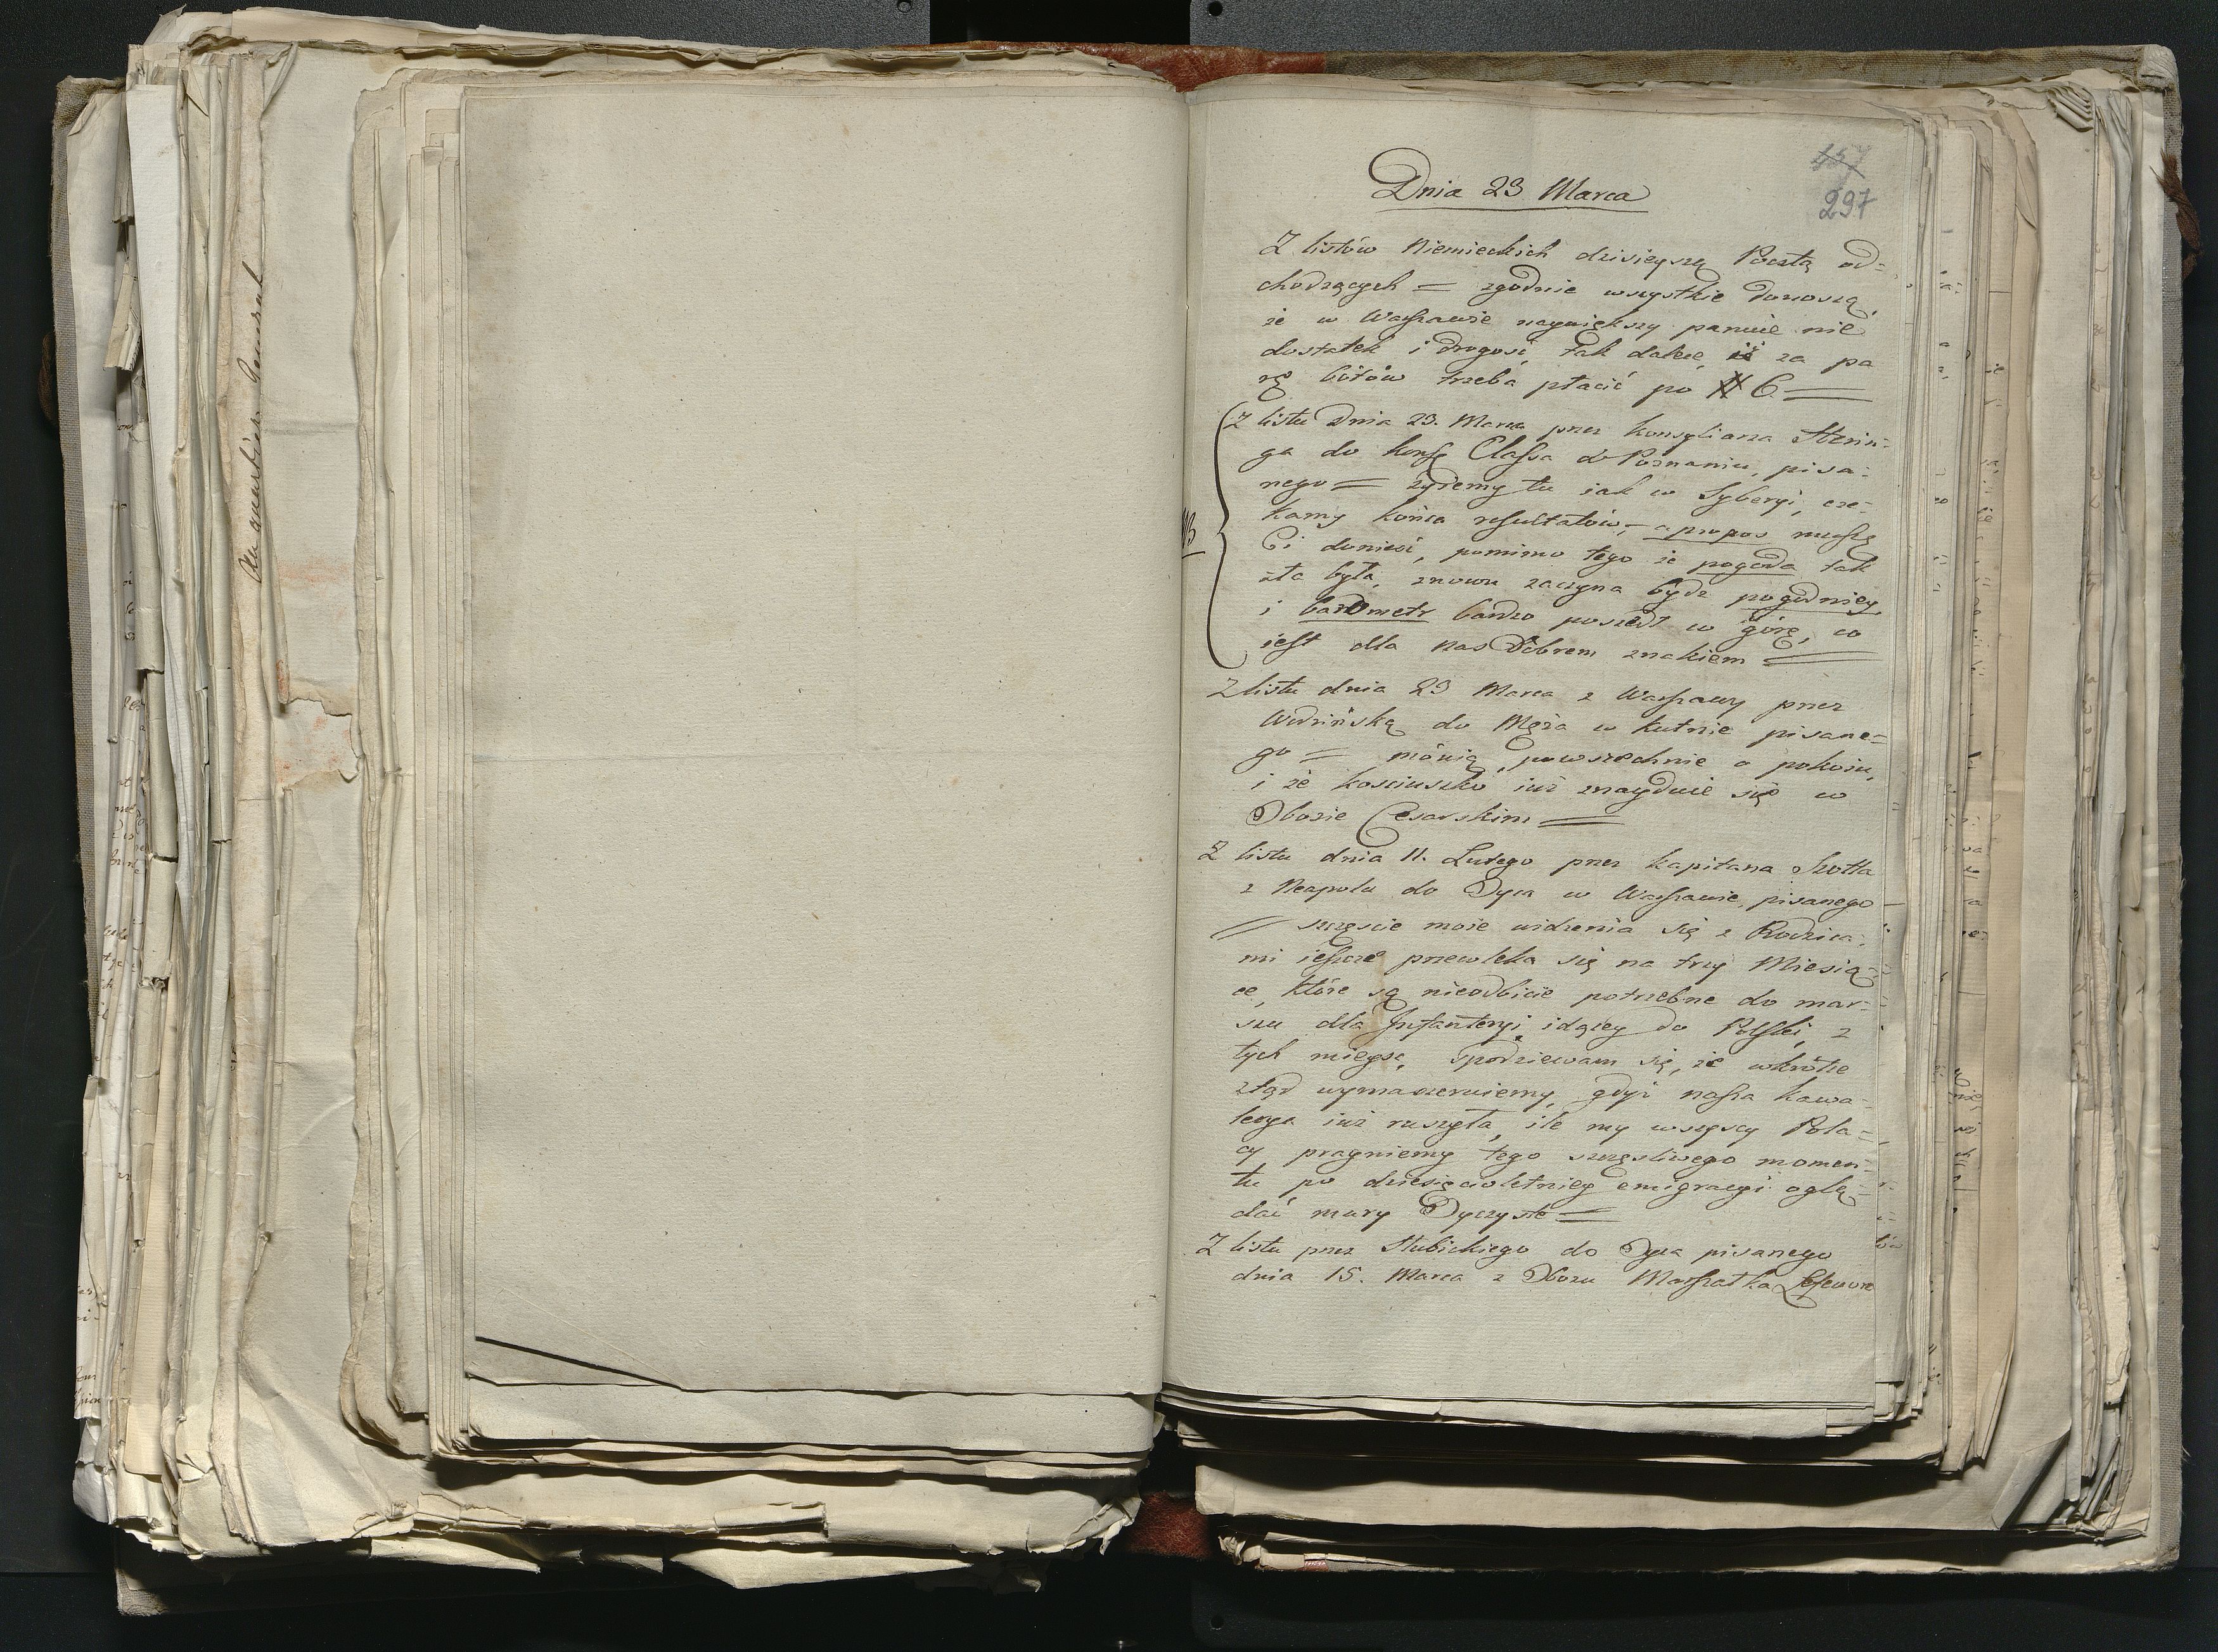 Dnia 23 Marca
457
297
Z listów Niemieckich dzisieyszą Pocztą od=
chodzących = zgodnie wszystkie donoszą,
że w Warszawie naywiększy panuie nie
dostatek i drogość, tak dalece, iż za pa
rę bótów trzeba płacić po # 6 =
Z listu Dnia 23. Marca przez Konsyliarza
ga do Classa do Poznaniu, pisa=
nego = żyiemy tu iak w Syberyi, cze=
kamy końca resultatów, – a propos muszę
Ci donieść, pomimo tego że pogoda tak
zła była, znowu zaczyna bydz pogodniey,
i barometr bardzo poszedł w górę, co
iest dla nas Dobrem znakiem =
NB
Z listu dnia 23 Marca z Warszawy przez
Wodzińską do Męża w Kutnie pisane=
go = mówią powszechnie o pokoiu,
i że Kosciuszko iuż znayduie się w
Obozie Cesarskim =
Z listu dnia 11. Lutego przez Kapitana Szotta
z Neapolu do Oyca w Warszawie, pisanego
= szczęscie moie widzenia się z Rodzica=
mi ieszcze przewleka się na trzy Miesią=
ce, które są nieodbicie potrzebne do mar=
szu dla Infanteryi idącey do Polski, z
tych mieysc, spodziewam się, że wkrótce
ztąd wymaszeruiemy, gdyż nasza Kawa=
lerya iuż ruszyła, ile my wszyscy Pola=
cy pragniemy tego szczęsliwego momen=
tu po dziesięcioletniey emigracyi oglą=
dać mury Oyczyste =
Z listu przez Słubickiego do Oyca pisanego
dnia 15. Marca z Obozu Marszałka Lefevore